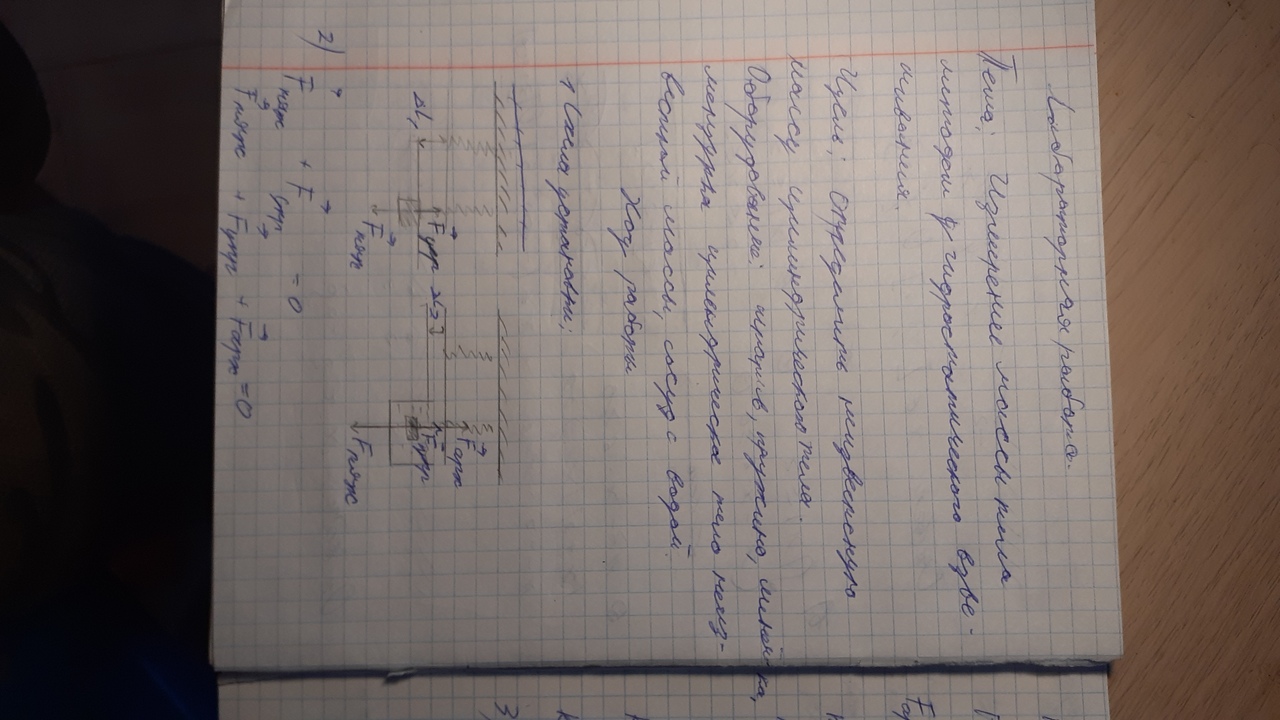 Лабораторная работа.
Тема: Измерение массы тела
методом гидростатического взве-
шивания.
Цель: Определить неизвестную
массу цилиндрического тела.
Оборудование: штатив, пружина, линейка,
мензурка цилиндрическое тело неиз-
вестной массы, сосуд с водой
Ход работы
1 Схема установки:
Fупр Fарх
Δl₁ Fупр
Fтяж Fтяж
2) Fтяж + Fупр = 0
Fтяж + Fупр + Fарх = 0
3